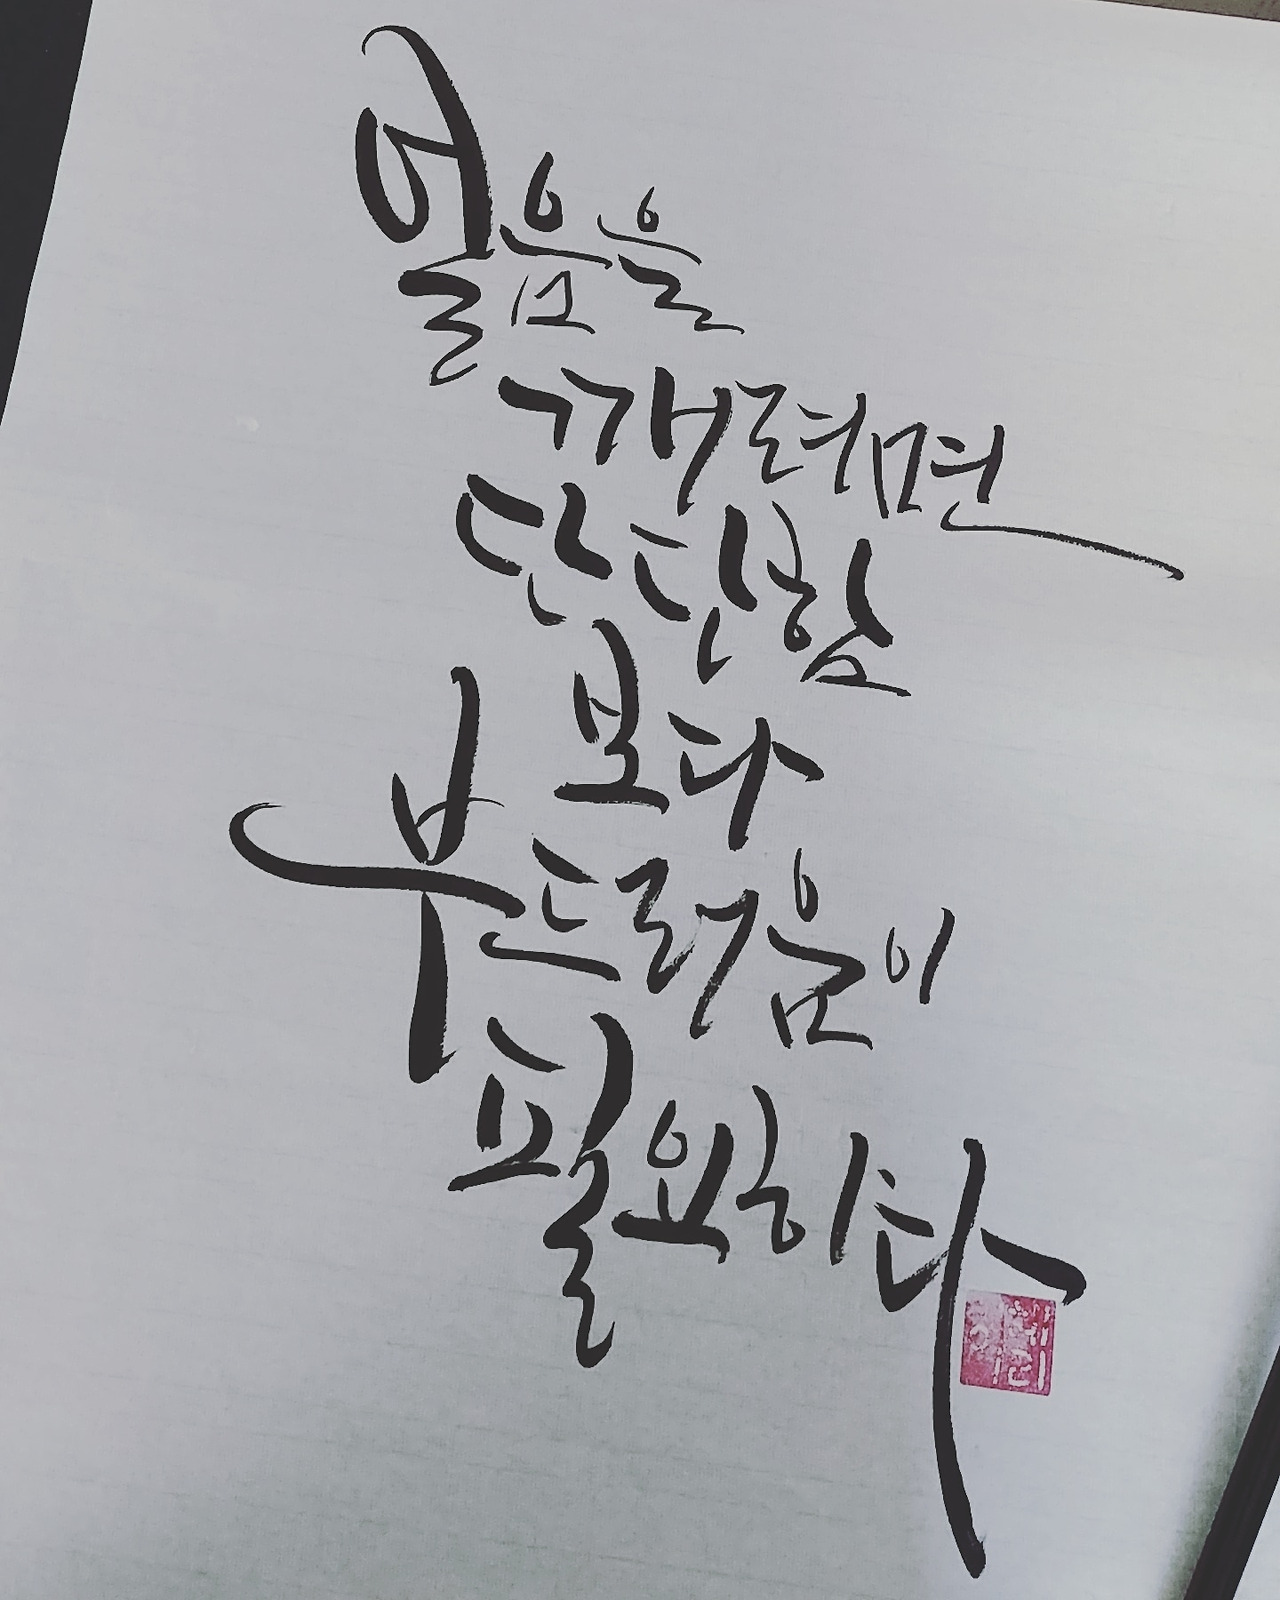 얼음을
깨려면
단단함
보다
부드러움이
필요하다